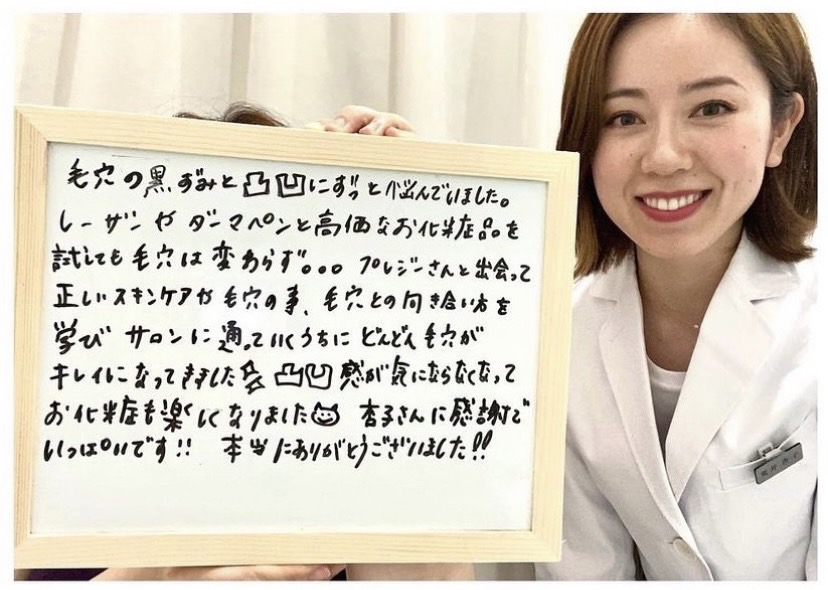 毛穴の黒ずみと凸凹にずっと悩んでいました。
レーザーやダーマペンと高価なお化粧品を
試しても毛穴は変わらず。。。プレジーさんと出会って
正しいスキンケアや毛穴の事、毛穴との向き合い方を
学びサロンに通っていくうちにどんどん毛穴が
キレイになってきました 凸凹感が気にならなくなって
お化粧も楽しくなりました 杏子さんに感謝で
いっぱいです!! 本当にありがとうございました!!